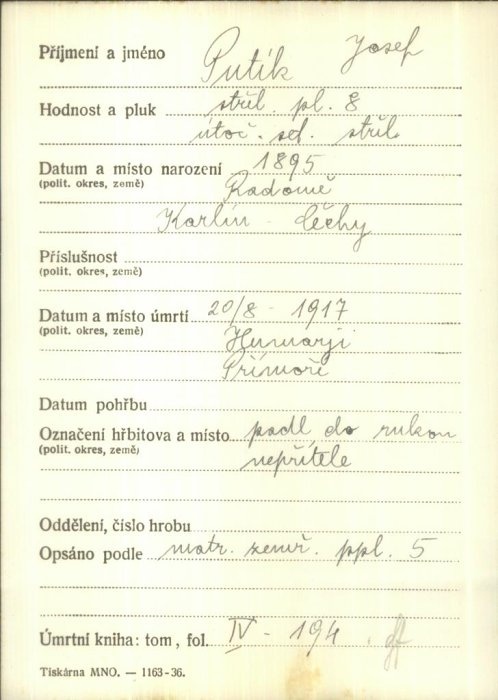 Příjmení a jméno Putík Josef
Hodnost a pluk střel. pl. 8
útoč. set. střel.
Datum a místo narození 1895
(polit. okres, země) Radomě
Karlín - Čechy
Příslušnost
(polit. okres, země)
Datum a místo úmrtí 20/8 - 1917
(polit. okres, země) Humarji
Přímoří
Datum pohřbu
Označení hřbitova a místo padl do rukou
(polit. okres, země) nepřítele
Oddělení, číslo hrobu
Opsáno podle matr. zemř. ppl. 5
Úmrtní kniha: tom, fol. IV - 194.
Tiskárna MNO. — 1163-36.